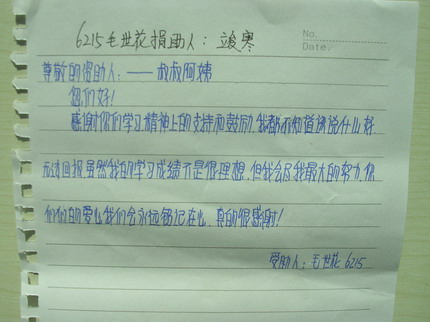 6215毛世花捐助人：竣寒
No.
Date.
尊敬的资助人：——叔叔阿姨
您们好！
感谢你们学习精神上的支持和鼓励，我都不知道该说什么好
无法回报，虽然我的学习成绩不是很理想，但我会尽我最大的努力，你
们们的爱心我们会永远铭记在心，真的很感谢！
受助人：毛世花 6215